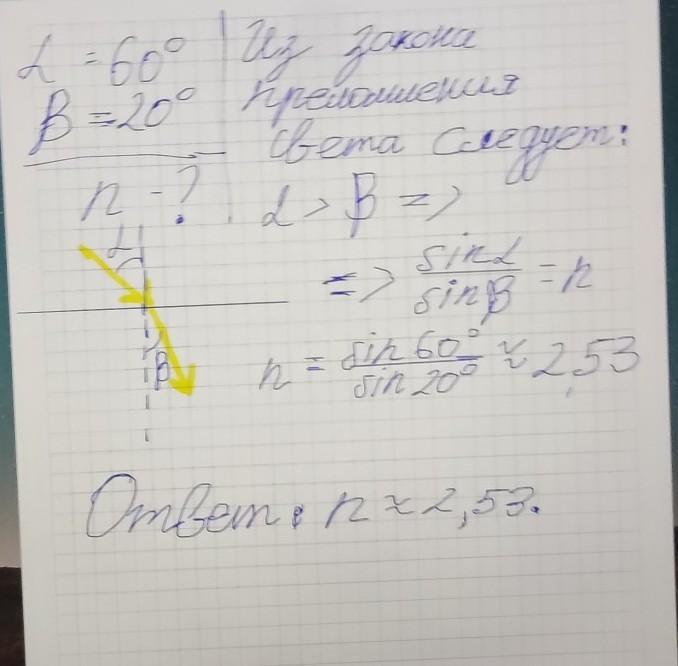 α = 60°
β = 20°
n - ?
Из закона
преломления
света следует:
α > β =>
=> sinα/sinβ = n
n = sin60°/sin20° ≈ 2,53
α
β
Ответ: n ≈ 2,53.